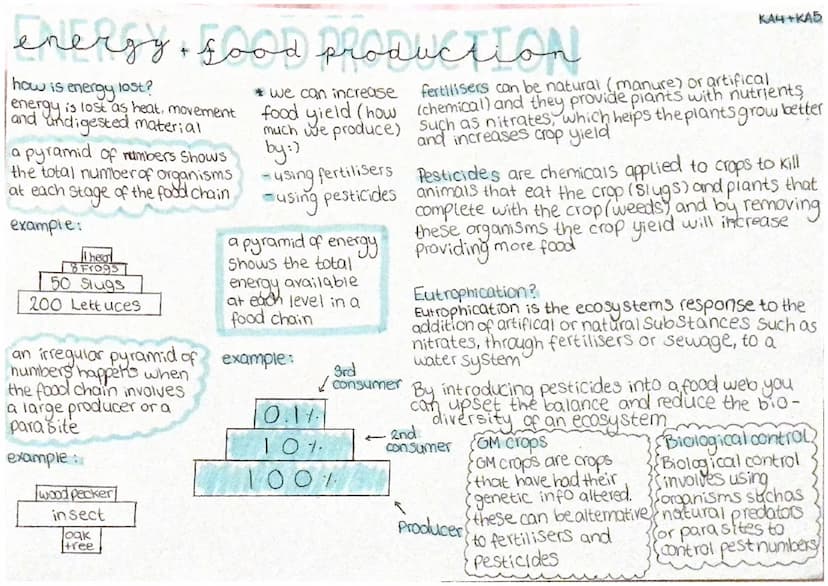 KA4+KA5
ENERGY + FOOD PRODUCTION
energy + food production
how is energy lost?
energy is lost as heat, movement
and undigested material
a pyramid of numbers shows
the total number of organisms
at each stage of the food chain
example:
8 Frogs
50 Slugs
200 Lettuces
an irregular pyramid of
numbers happens when
the food chain involves
a large producer or a
parasite
example:
woodpecker
insect
oak
tree
* we can increase
food yield (how
much we produce)
by:)
- using fertilisers
- using pesticides
a pyramid of energy
shows the total
energy available
at each level in a
food chain
example:
3rd
consumer
0.1%
10%
2nd
consumer
100%
Producer
fertilisers can be natural (manure) or artifical
(chemical) and they provide plants with nutrients
such as nitrates, which helps the plants grow better
and increases crop yield
Pesticides are chemicals applied to crops to kill
animals that eat the crop (slugs) and plants that
complete with the crop (weeds) and by removing
these organisms the crop yield will increase
providing more food
Eutrophication?
Eutrophication is the ecosystems response to the
addition of artifical or natural substances such as
nitrates, through fertilisers or sewage, to a
water system
By introducing pesticides into a food web you
can upset the balance and reduce the bio-
diversity of an ecosystem
GM crops
GM crops are crops
that have had their
genetic info altered.
these can be alternative
to fertilisers and
pesticides
Biological control
Biological control
involves using
organisms such as
natural predators
or parasites to
control pest numbers